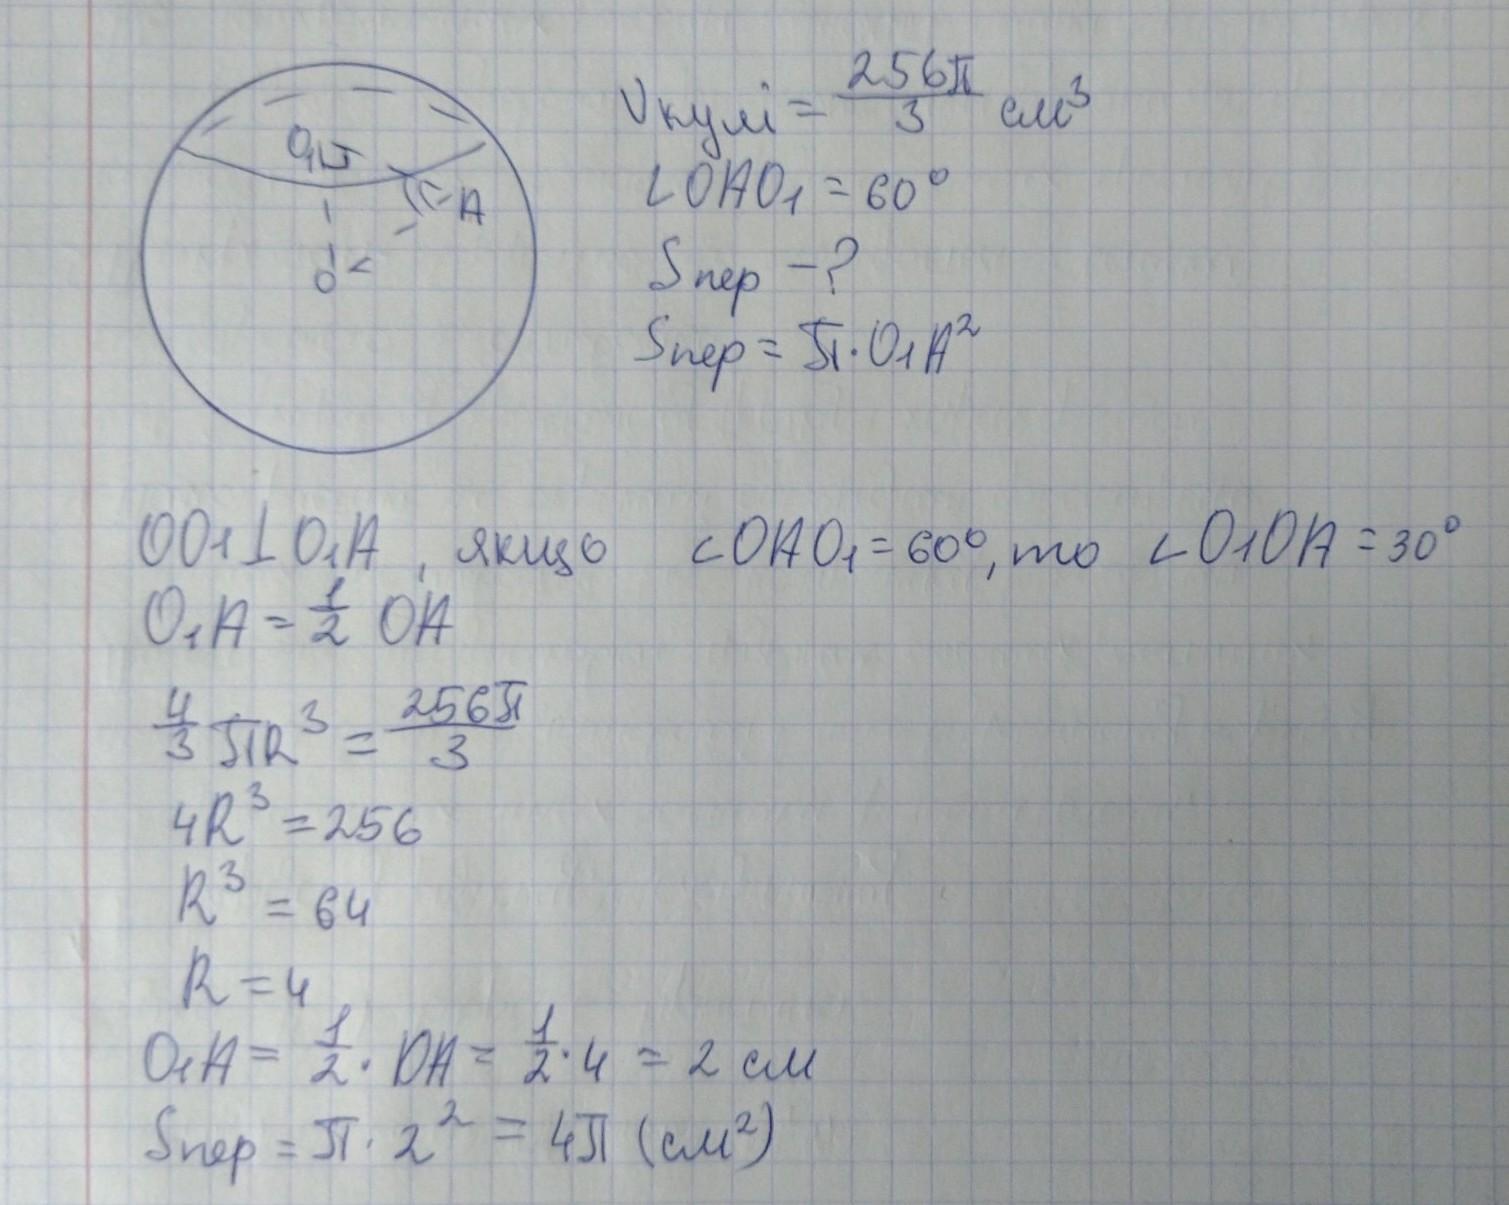 O₁
A
O
Vкулі = 256π/3 см³
∠OAO₁ = 60°
Sпер - ?
Sпер = π·O₁A²
OO₁ ⊥ O₁A, якщо ∠OAO₁ = 60°, то ∠O₁OA = 30°
O₁A = 1/2 OA
4/3 πR³ = 256π/3
4R³ = 256
R³ = 64
R = 4
O₁A = 1/2 · OA = 1/2 · 4 = 2 см
Sпер = π · 2² = 4π (см²)